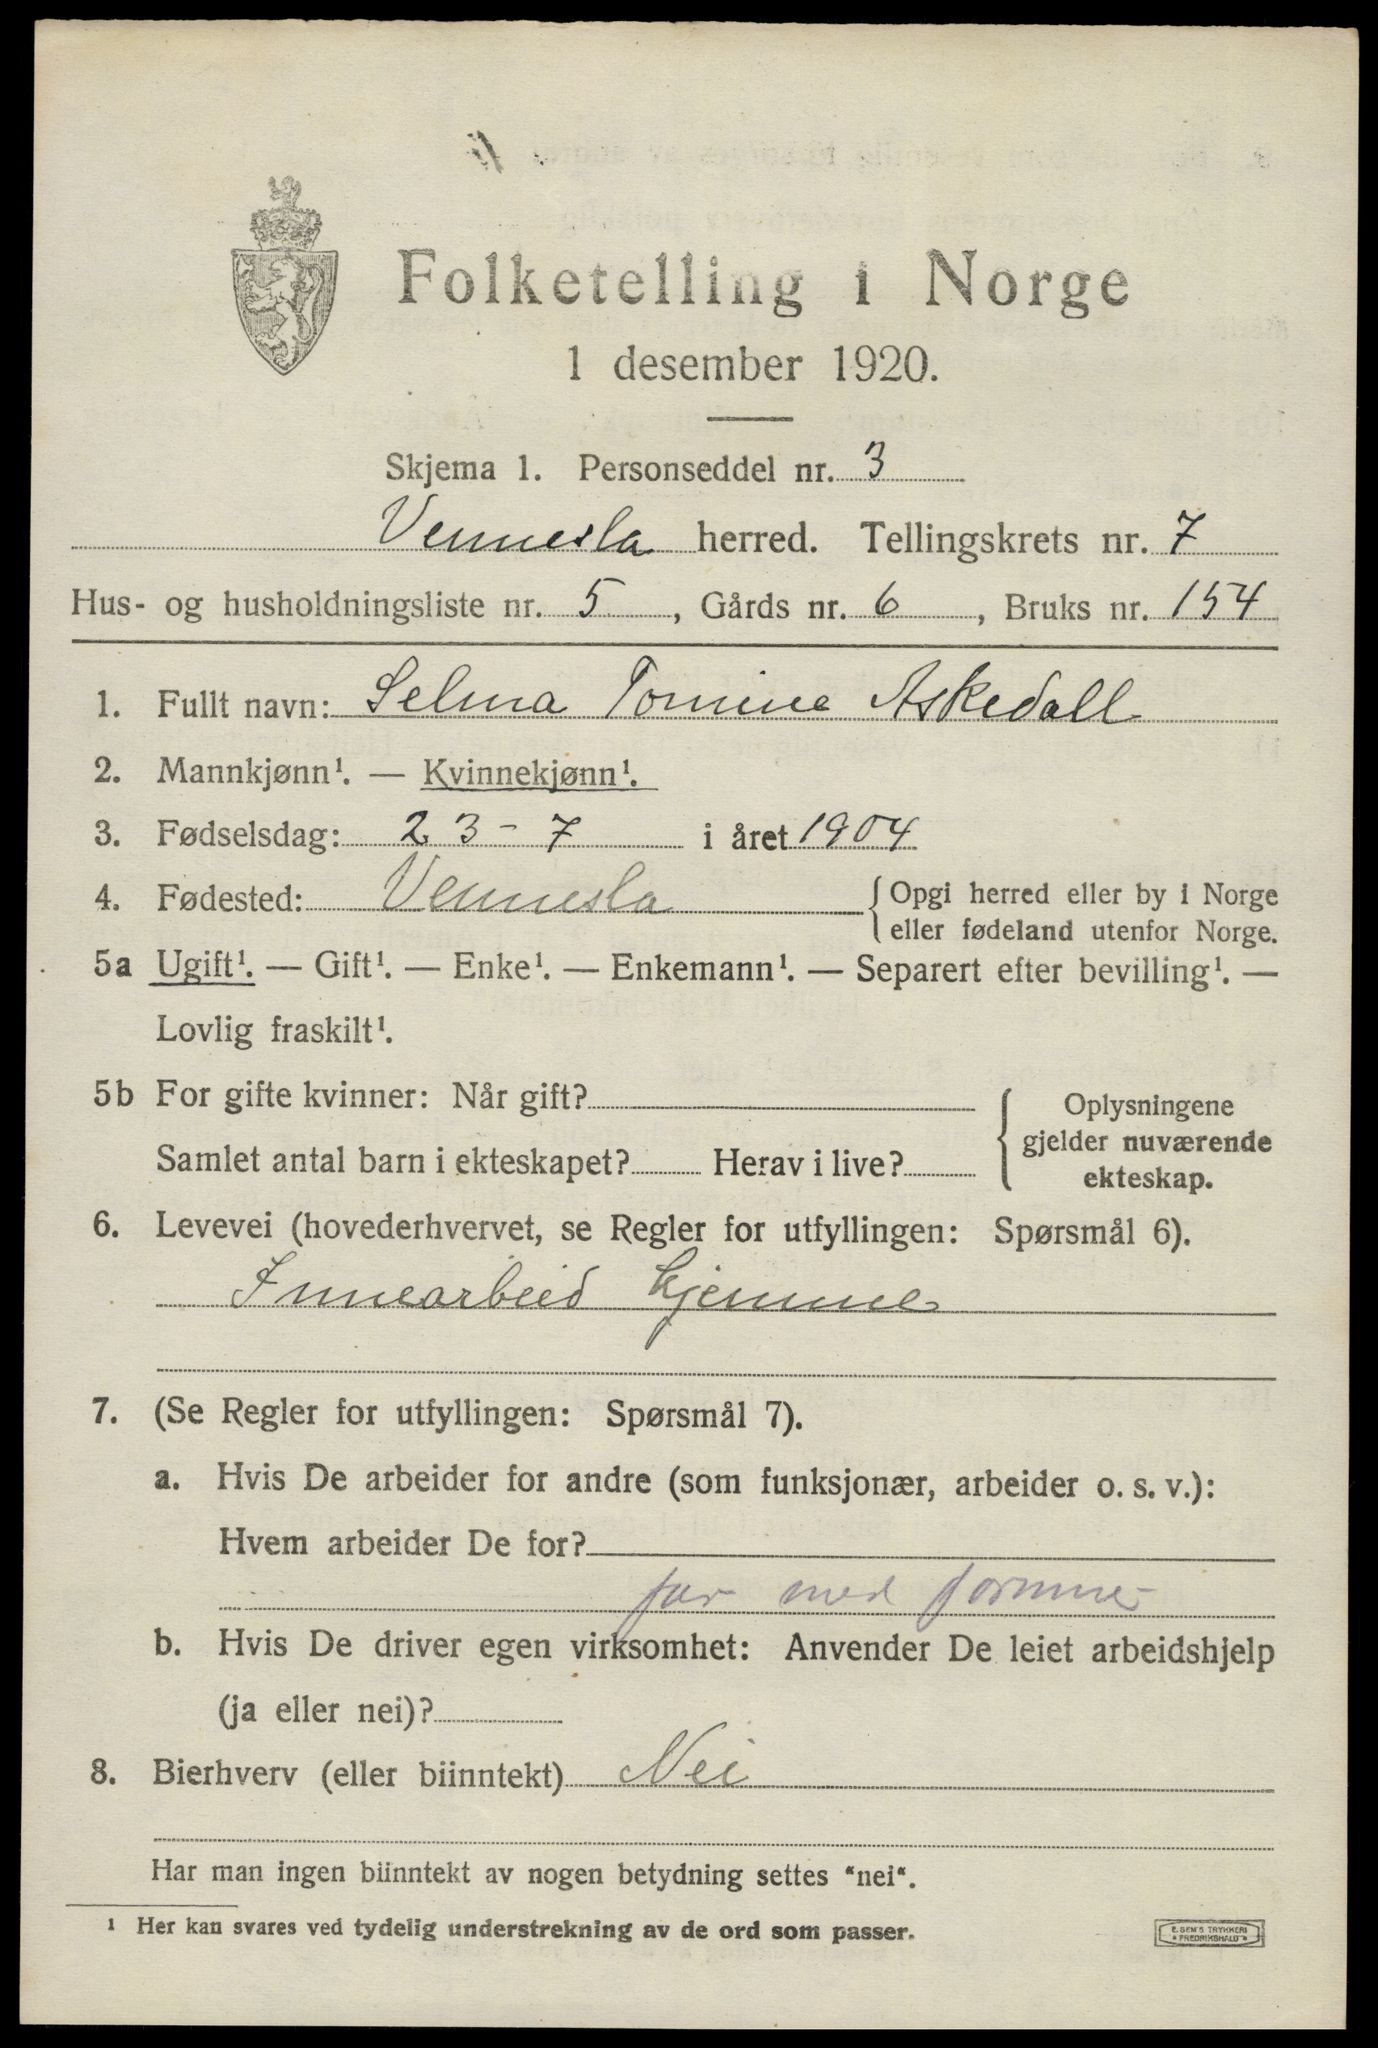 Folketelling i Norge
1 desember 1920.
Skjema 1. Personseddel nr. 3
Vennesla herred. Tellingskrets nr. 7
Hus- og husholdningsliste nr. 5, Gårds nr. 6, Bruks nr. 154
1. Fullt navn: Selma Tomine Askedall
2. Mannkjønn¹. — Kvinnekjønn¹.
3. Fødselsdag: 23-7 i året 1904
4. Fødested: Vennesla { Opgi herred eller by i Norge
eller fødeland utenfor Norge.
5a Ugift¹. — Gift¹. — Enke¹. — Enkemann¹. — Separert efter bevilling¹. —
Lovlig fraskilt¹.
5b For gifte kvinner: Når gift?
Samlet antal barn i ekteskapet? Herav i live?
{ Oplysningene
gjelder nuværende
ekteskap.
6. Levevei (hovederhvervet, se Regler for utfyllingen: Spørsmål 6).
Innearbeid hjemme
7. (Se Regler for utfyllingen: Spørsmål 7).
a. Hvis De arbeider for andre (som funksjonær, arbeider o. s. v.):
Hvem arbeider De for?
far med
b. Hvis De driver egen virksomhet: Anvender De leiet arbeidshjelp
(ja eller nei)?
8. Bierhverv (eller biinntekt) Nei
Har man ingen biinntekt av nogen betydning settes “nei“.
1 Her kan svares ved tydelig understrekning av de ord som passer.
E. SEM'S TRYKKERI
FREDRIKSHALD